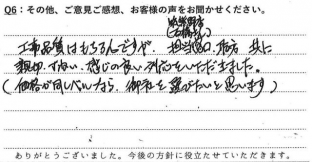 Q6：その他、ご意見ご感想、お客様の声をお聞かせください。
工事品質はもちろんですが、担当者の 方 共に
親切、丁ねい、感じの良い対応をいただきました。
(価格が同レベルなら、御社を選びたいと思います)
ありがとうございました。今後の方針に役立たせていただきます。